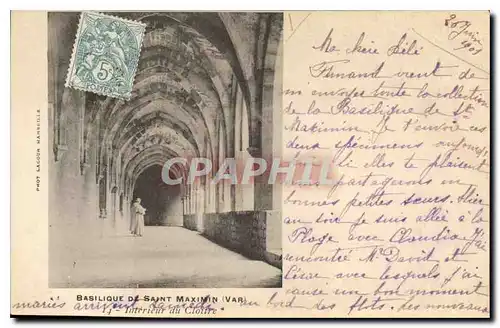 28 Juin
1901
Ma chère Lélé
Fernand vient de
m'envoyer la collection
de la Basilique de St
Maximin je t'envoie ces
deux spécimens aujourd'
si elles te plaisent
nous partagerons en
bonnes petites sœurs. Hier
au soir je suis allée à la
Plage avec Claudia j'ai
rencontré Mr David et
César avec lesquels j'ai
été un bon moment
au bord des flots. des nouveaux
mariés arrivent
5
CPA
PHOT LACOUR MARSEILLE
BASILIQUE DE SAINT MAXIMIN (VAR)
14 - Intérieur du Cloître